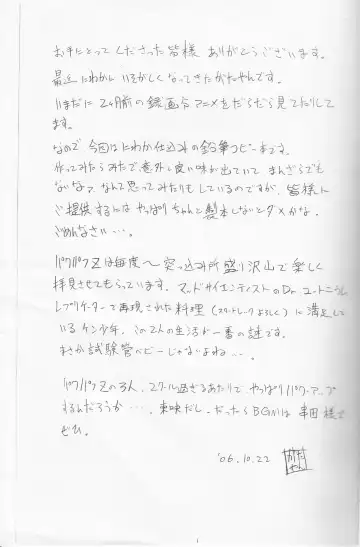 お手にとってくださった皆様 ありがとうございます。
最近にわかにいそがしくなってきたかたやんです。
いまだに2ヶ月前の録画分アニメをだらだら見てたりして
ます。
なので 今回はにわか仕込みの鉛筆コピー本です。
作ってみたらみたで意外と良い味が出ていて まんざらでも
ないなァ なんて思ってみたりもしているのですが、皆様に
ご提供するには やっぱりちゃんと製本しないとダメかな。
ごめんなさい…。
パワパフZは毎度〜突っ込み所盛り沢山で楽しく
拝見させてもらっています。マッドサイエンティストのDr.ユートニウム
レプリケーターで再現された料理(スタートレックよろしく)に満足して
いるケン少年、この2人の生活が一番の謎です。
まさか試験管ベビーじゃないよね…。
パワパフZの3人、スクール過ぎるあたりで やっぱりパワーアップ
するんだろうか…。東映だし。だったらBGMは 串田様で
ぜひ。
'06.10.22